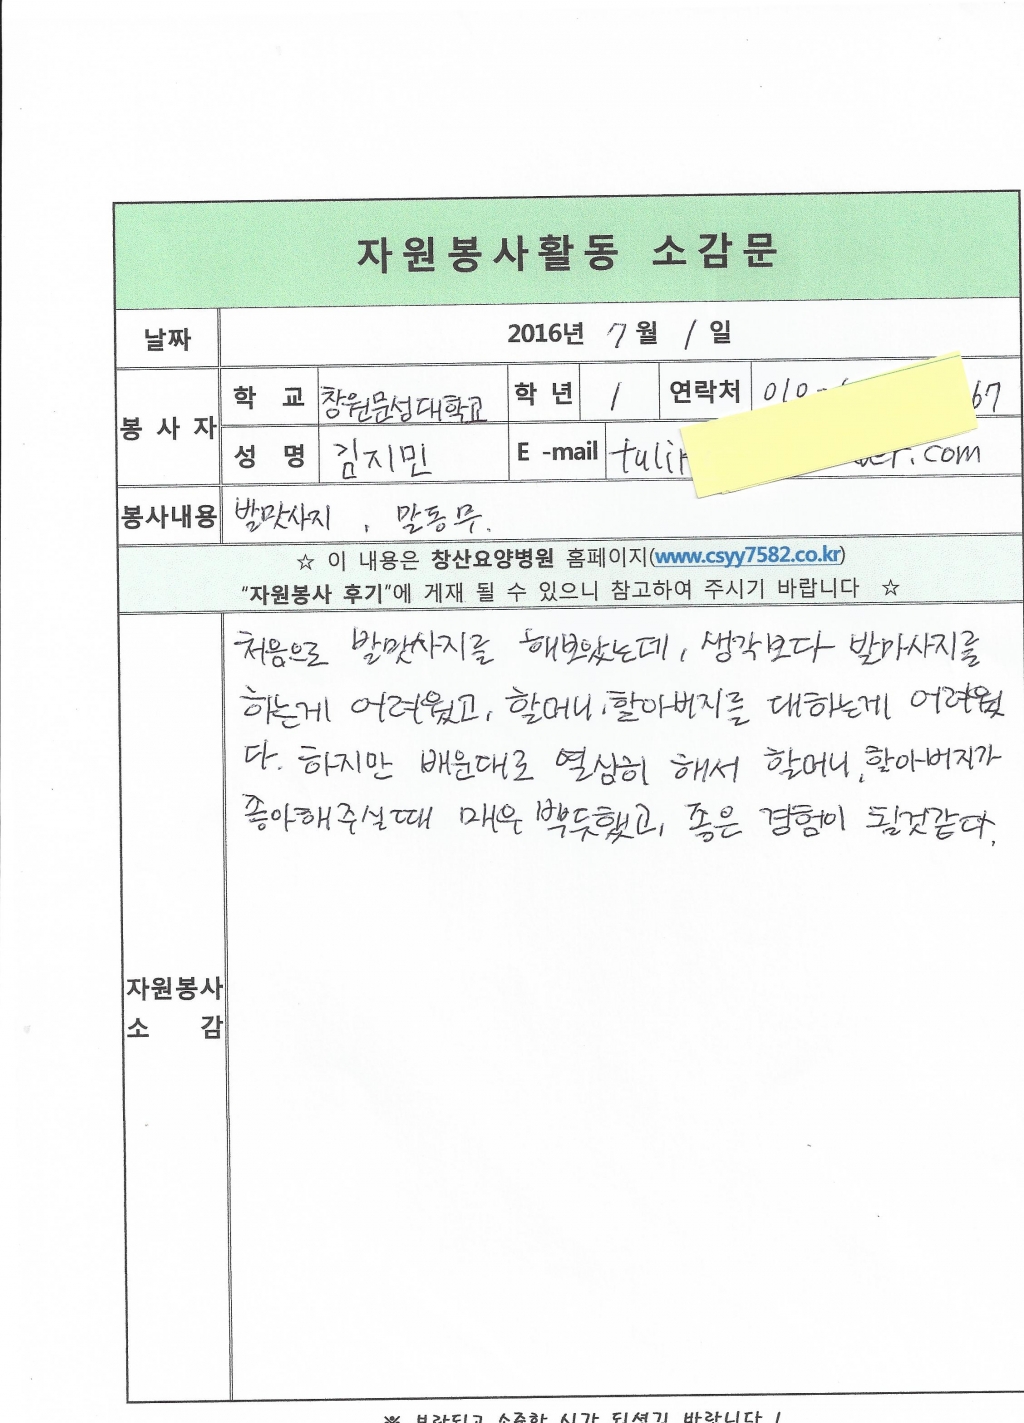 자원봉사활동 소감문
날짜 2016년 7월 1일
봉사자 학 교 창원문성대학교 학년 1 연락처 010- 67
성 명 김지민 E-mail tulip .com
봉사내용 발맛사지, 말동무.
☆ 이 내용은 창산요양병원 홈페이지(www.csyy7582.co.kr)
"자원봉사 후기"에 게재 될 수 있으니 참고하여 주시기 바랍니다 ☆
처음으로 발맛사지를 해보았는데, 생각보다 발마사지를
하는게 어려웠고, 할머니,할아버지를 대하는게 어려웠
다. 하지만 배운대로 열심히 해서 할머니,할아버지가
좋아해주실때 매우 뿌듯했고, 좋은 경험이 될것같다.
자원봉사
소 감
※ 보람되고 소중한 시간 되셨기 바랍니다!